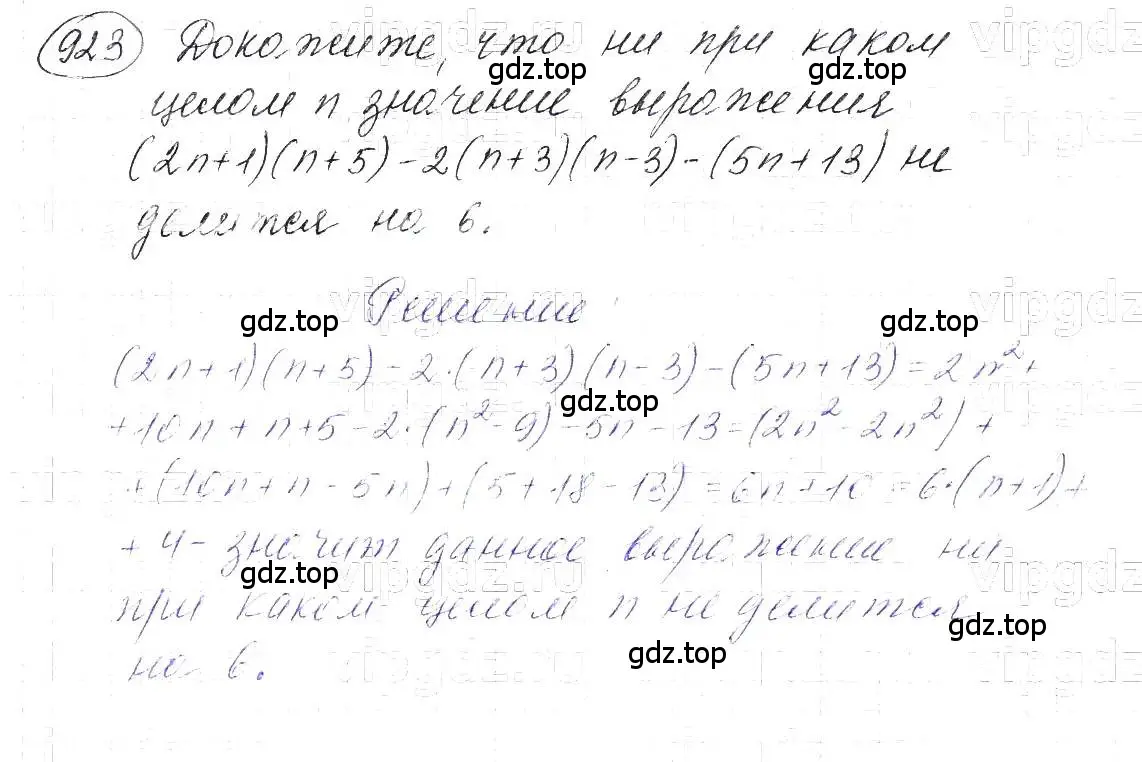 923 Докажите, что ни при каком
целом n значение выражения
(2n+1)(n+5)-2(n+3)(n-3)-(5n+13) не
делится на 6.
Решение
(2n+1)(n+5)-2·(n+3)(n-3)-(5n+13)=2n²+
+10n+n+5-2·(n²-9)-5n-13=(2n²-2n²)+
+(10n+n-5n)+(5+18-13)=6n+10=6·(n+1)+
+4- значит данное выражение ни
при каком целом n не делится
на 6.
vipgdz
gdz.top
gdz.top
vipgdz.ru
vipgdz
gdz.top
gdz.top
gdz.top
gdz.top
gdz.top
gdz.top